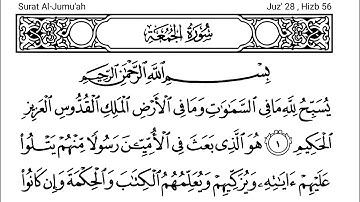 Surat Al-Jumu'ah Juz' 28 , Hizb 56
سُورَةُ الْجُمُعَةِ
بِسْمِ اللَّهِ الرَّحْمَٰنِ الرَّحِيمِ
يُسَبِّحُ لِلَّهِ مَا فِي السَّمَٰوَٰتِ وَمَا فِي الْأَرْضِ الْمَلِكِ الْقُدُّوسِ الْعَزِيزِ
الْحَكِيمِ ١ هُوَ الَّذِي بَعَثَ فِي الْأُمِّيِّـۧنَ رَسُولًا مِّنْهُمْ يَتْلُوا۟
عَلَيْهِمْ ءَايَٰتِهِۦ وَيُزَكِّيهِمْ وَيُعَلِّمُهُمُ الْكِتَٰبَ وَالْحِكْمَةَ وَإِن كَانُوا۟